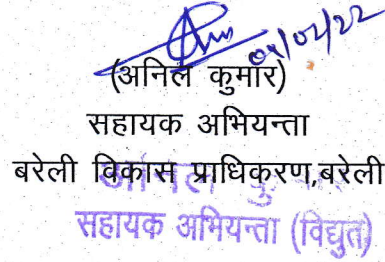 04/02/22
(अनिल कुमार)
सहायक अभियन्ता
बरेली विकास प्राधिकरण,बरेली
अनिल कु
सहायक अभियन्ता (विद्युत)